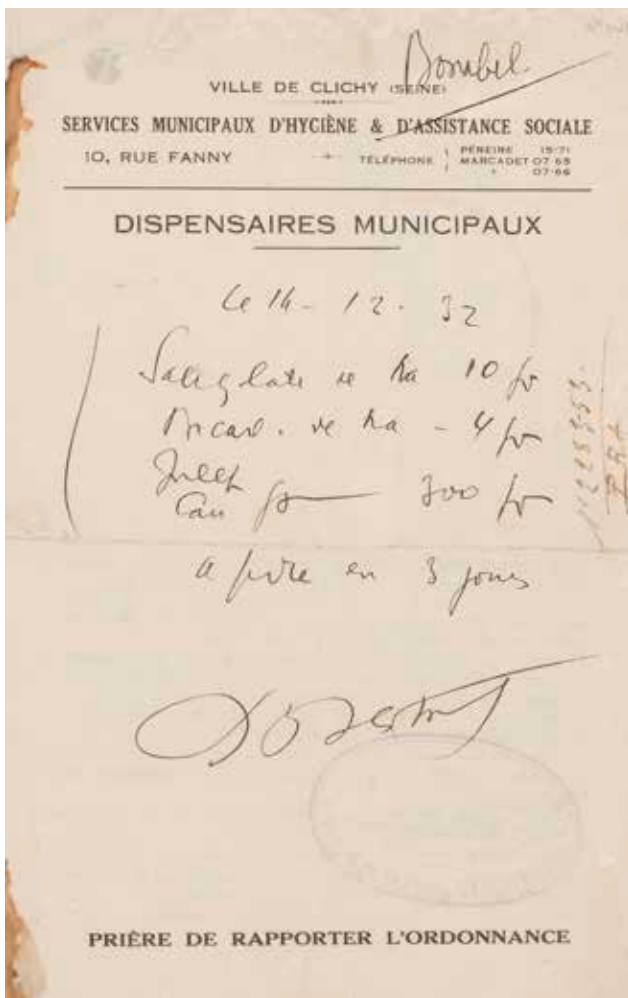 Bonabel
VILLE DE CLICHY (SEINE)
SERVICES MUNICIPAUX D'HYGIÈNE & D'ASSISTANCE SOCIALE
10, RUE FANNY
TÉLÉPHONE
PÉREIRE 15-71
MARCADET 07 65
" 07-66
DISPENSAIRES MUNICIPAUX
Le 14 - 12 - 32
Salicylate de Na 10 gr
Bicarb. de Na - 4 gr
Julep
Eau 300 gr
en 3 jours
PRIÈRE DE RAPPORTER L'ORDONNANCE